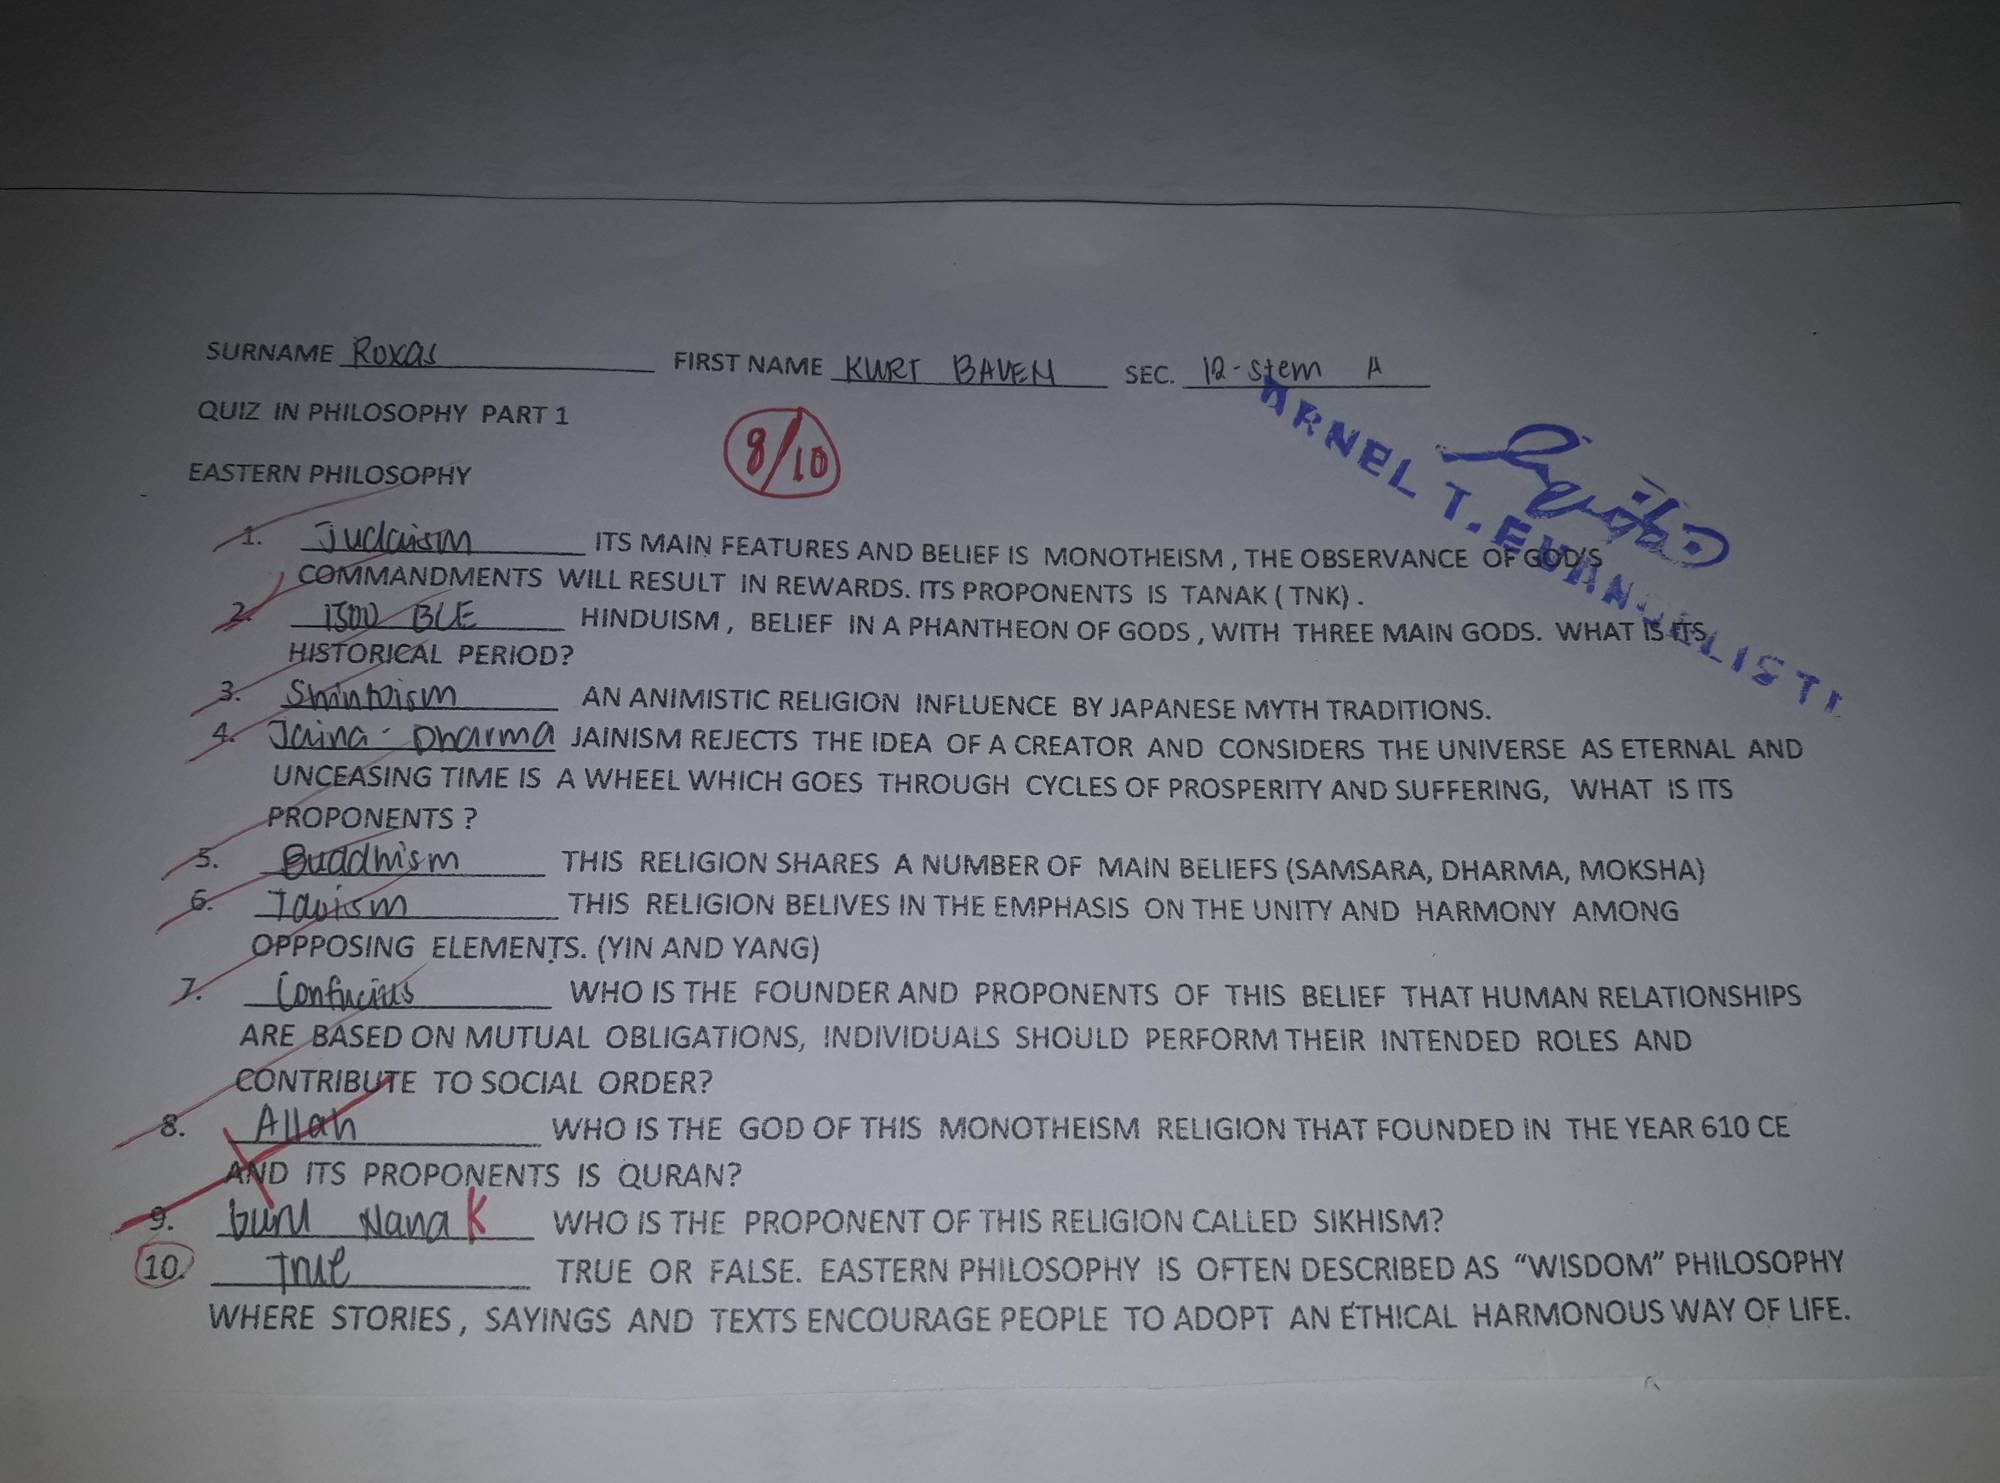 SURNAME Roxas FIRST NAME KURT BAVEN SEC. 12-stem A
QUIZ IN PHILOSOPHY PART 1
8/10
ARNEL T. EVANGELISTA
EASTERN PHILOSOPHY
1. Judaism ITS MAIN FEATURES AND BELIEF IS MONOTHEISM , THE OBSERVANCE OF GOD'S
COMMANDMENTS WILL RESULT IN REWARDS. ITS PROPONENTS IS TANAK ( TNK) .
2. 1500 BCE HINDUISM , BELIEF IN A PHANTHEON OF GODS , WITH THREE MAIN GODS. WHAT IS ITS
HISTORICAL PERIOD?
3. Shintoism AN ANIMISTIC RELIGION INFLUENCE BY JAPANESE MYTH TRADITIONS.
4. Jaina - Dharma JAINISM REJECTS THE IDEA OF A CREATOR AND CONSIDERS THE UNIVERSE AS ETERNAL AND
UNCEASING TIME IS A WHEEL WHICH GOES THROUGH CYCLES OF PROSPERITY AND SUFFERING, WHAT IS ITS
PROPONENTS ?
5. Buddhism THIS RELIGION SHARES A NUMBER OF MAIN BELIEFS (SAMSARA, DHARMA, MOKSHA)
6. Taoism THIS RELIGION BELIVES IN THE EMPHASIS ON THE UNITY AND HARMONY AMONG
OPPPOSING ELEMENTS. (YIN AND YANG)
7. Confucius WHO IS THE FOUNDER AND PROPONENTS OF THIS BELIEF THAT HUMAN RELATIONSHIPS
ARE BASED ON MUTUAL OBLIGATIONS, INDIVIDUALS SHOULD PERFORM THEIR INTENDED ROLES AND
CONTRIBUTE TO SOCIAL ORDER?
8. Allah WHO IS THE GOD OF THIS MONOTHEISM RELIGION THAT FOUNDED IN THE YEAR 610 CE
AND ITS PROPONENTS IS QURAN?
9. Guru Nanak WHO IS THE PROPONENT OF THIS RELIGION CALLED SIKHISM?
10. True TRUE OR FALSE. EASTERN PHILOSOPHY IS OFTEN DESCRIBED AS "WISDOM" PHILOSOPHY
WHERE STORIES , SAYINGS AND TEXTS ENCOURAGE PEOPLE TO ADOPT AN ETHICAL HARMONOUS WAY OF LIFE.